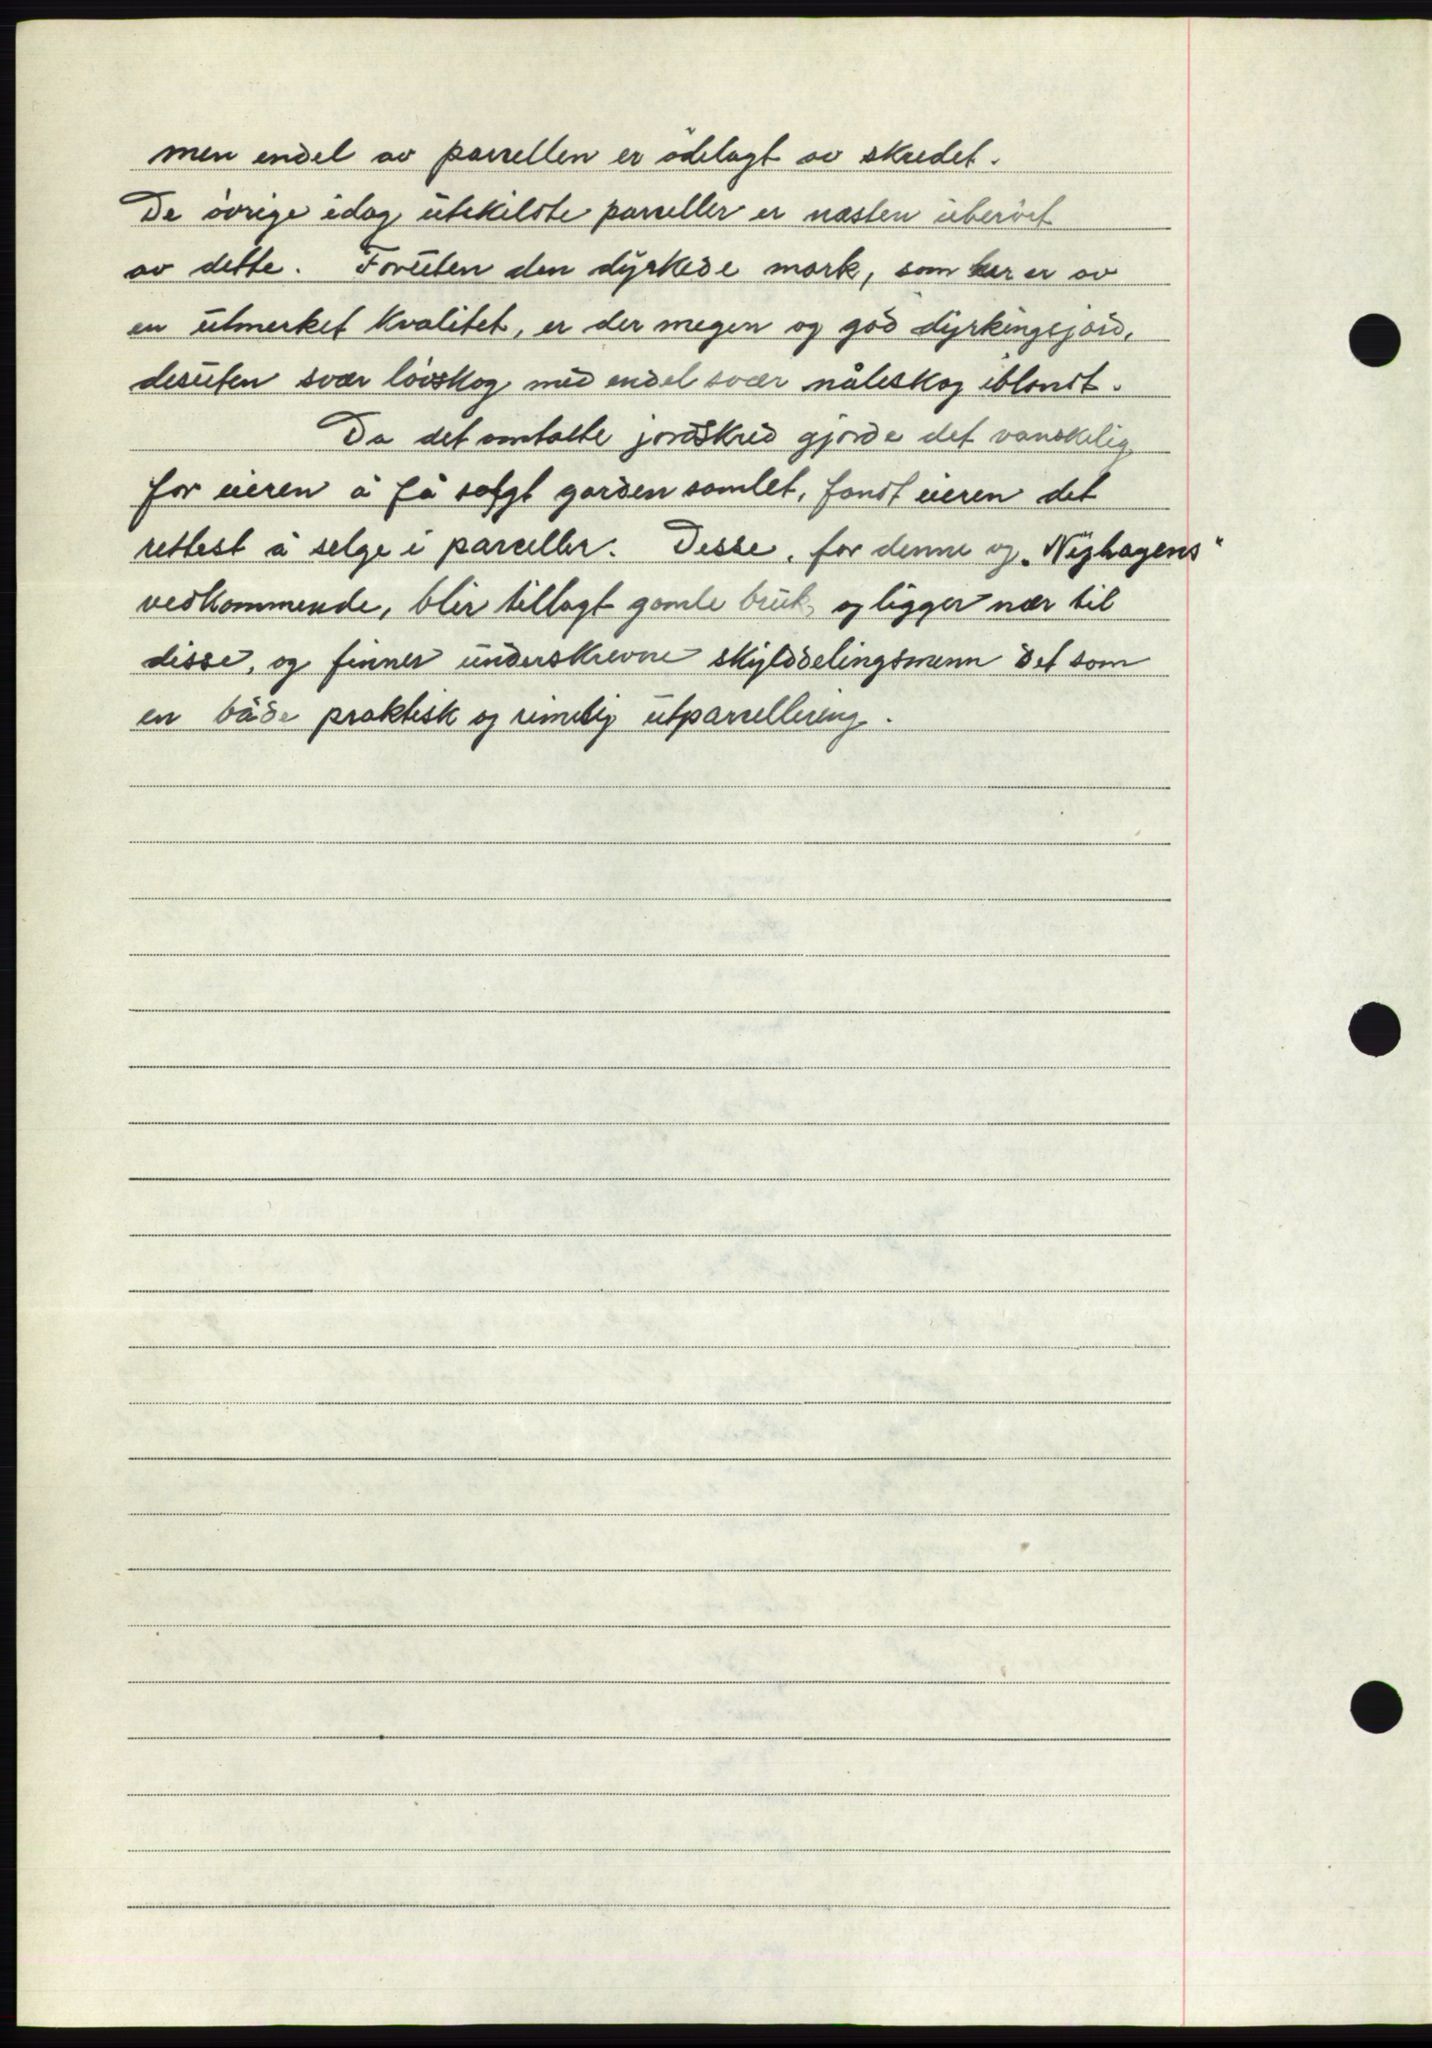 men endel av parsellen er ödelagt av skredet.
De övrige idag utskilste parseller er næsten uberört
av dette. Foruten den dyrkede mark, som her er av
en utmerket kvalitet, er der megen og god dyrkingsjord,
desuten svær lövskog med endel svær nåleskog iblandt.
Da det omtalte jordskred gjorde det vanskelig
for eieren å få solgt garden samlet, fandt eieren det
rettest å selge i parceller. Desse, for denne og „Nyhagens“
vedkommende, blir tillagt gamle bruk, og ligger nær til
disse, og finner underskrevne skylddelingsmenn det som
en både praktisk og rimelig utparsellering.